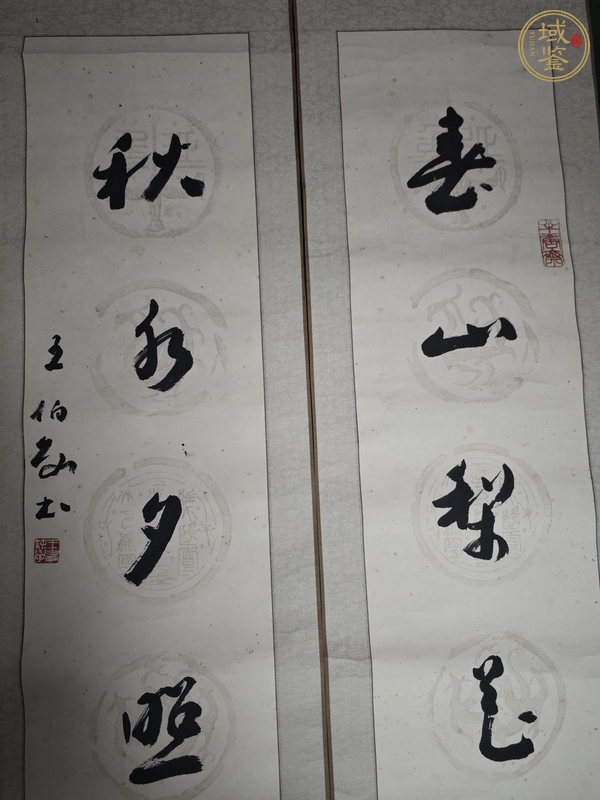 春山梨花
秋水夕照
王伯敏书
域鉴